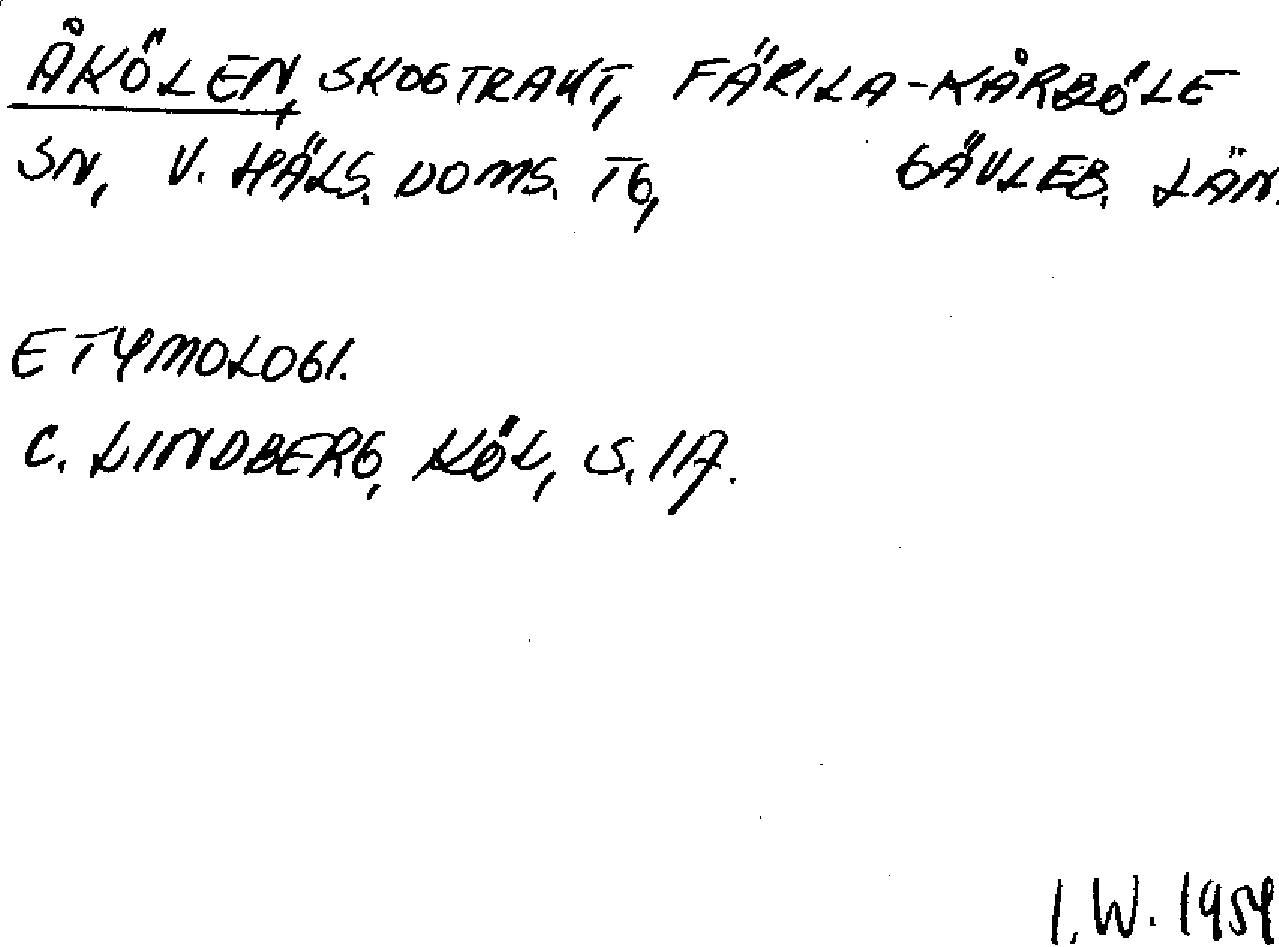 ÅKÖLEN, SKOGTRAKT, FÄRILA-KÅRBÖLE
SN, V. HÄLS. DOMS. TG, GÄVLEB. LÄN.
ETYMOLOGI.
C. LINDBERG, KÖL, S. 117.
I. W. 1954